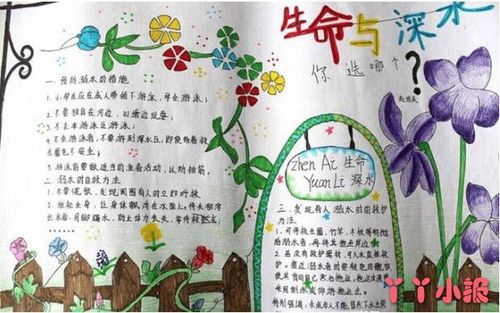 生命与深水
你选哪个?
一. 预防溺水的措施
1. 小学生应在成人带领下游泳,学会游泳;
2. 不要独自在河边、山塘边玩耍;
3. 不去非游泳区游泳;
4. 不会游泳者,不要游到深水区,即使带着救
生圈也不安全;
5. 游泳前要做适当的准备活动,以防抽筋。
二. 溺水的自救方法
1. 不要慌张,发现周围有人时立即呼救;
2. 放松全身,让身体飘浮在水面上,将头部浮
出水面,用脚踢水,防止体力丧失,等待救援;
Zhen Ai 生命
Yuan Li 深水
三. 发现有人溺水时的救护
方法
1. 可将救生圈、竹竿、木板等物抛给
溺水者,再将其拖至岸边;
2. 若没有救护器材,可入水直接救
护。
特别强调:未成年人不能
丫丫小报